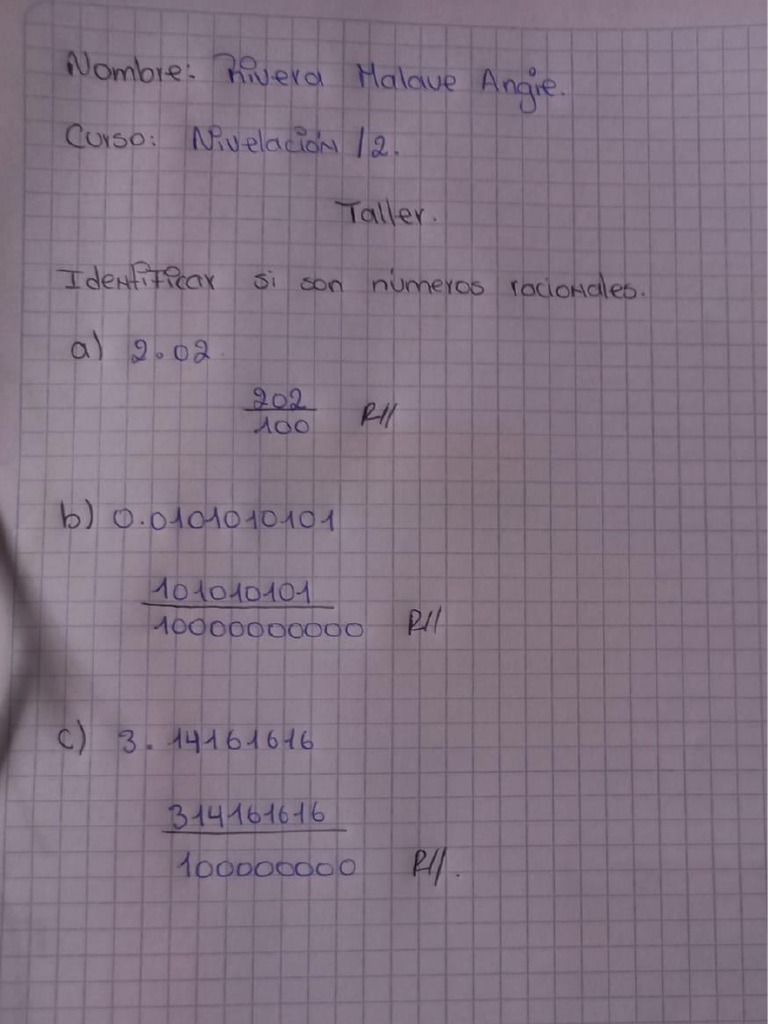 Nombre: Rivera Malave Angie.
Curso: Nivelación 12.
Taller.
Identificar si son números racionales.
a) 2.02
202
100 R//
b) 0.0101010101
101010101
10000000000 R//
c) 3.14161616
314161616
100000000 R//.